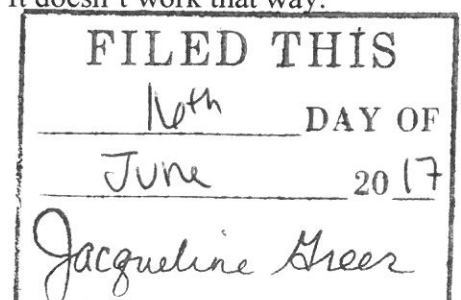 It doesn't work that way.
FILED THIS
16th DAY OF
June 2017
Jacqueline Greer